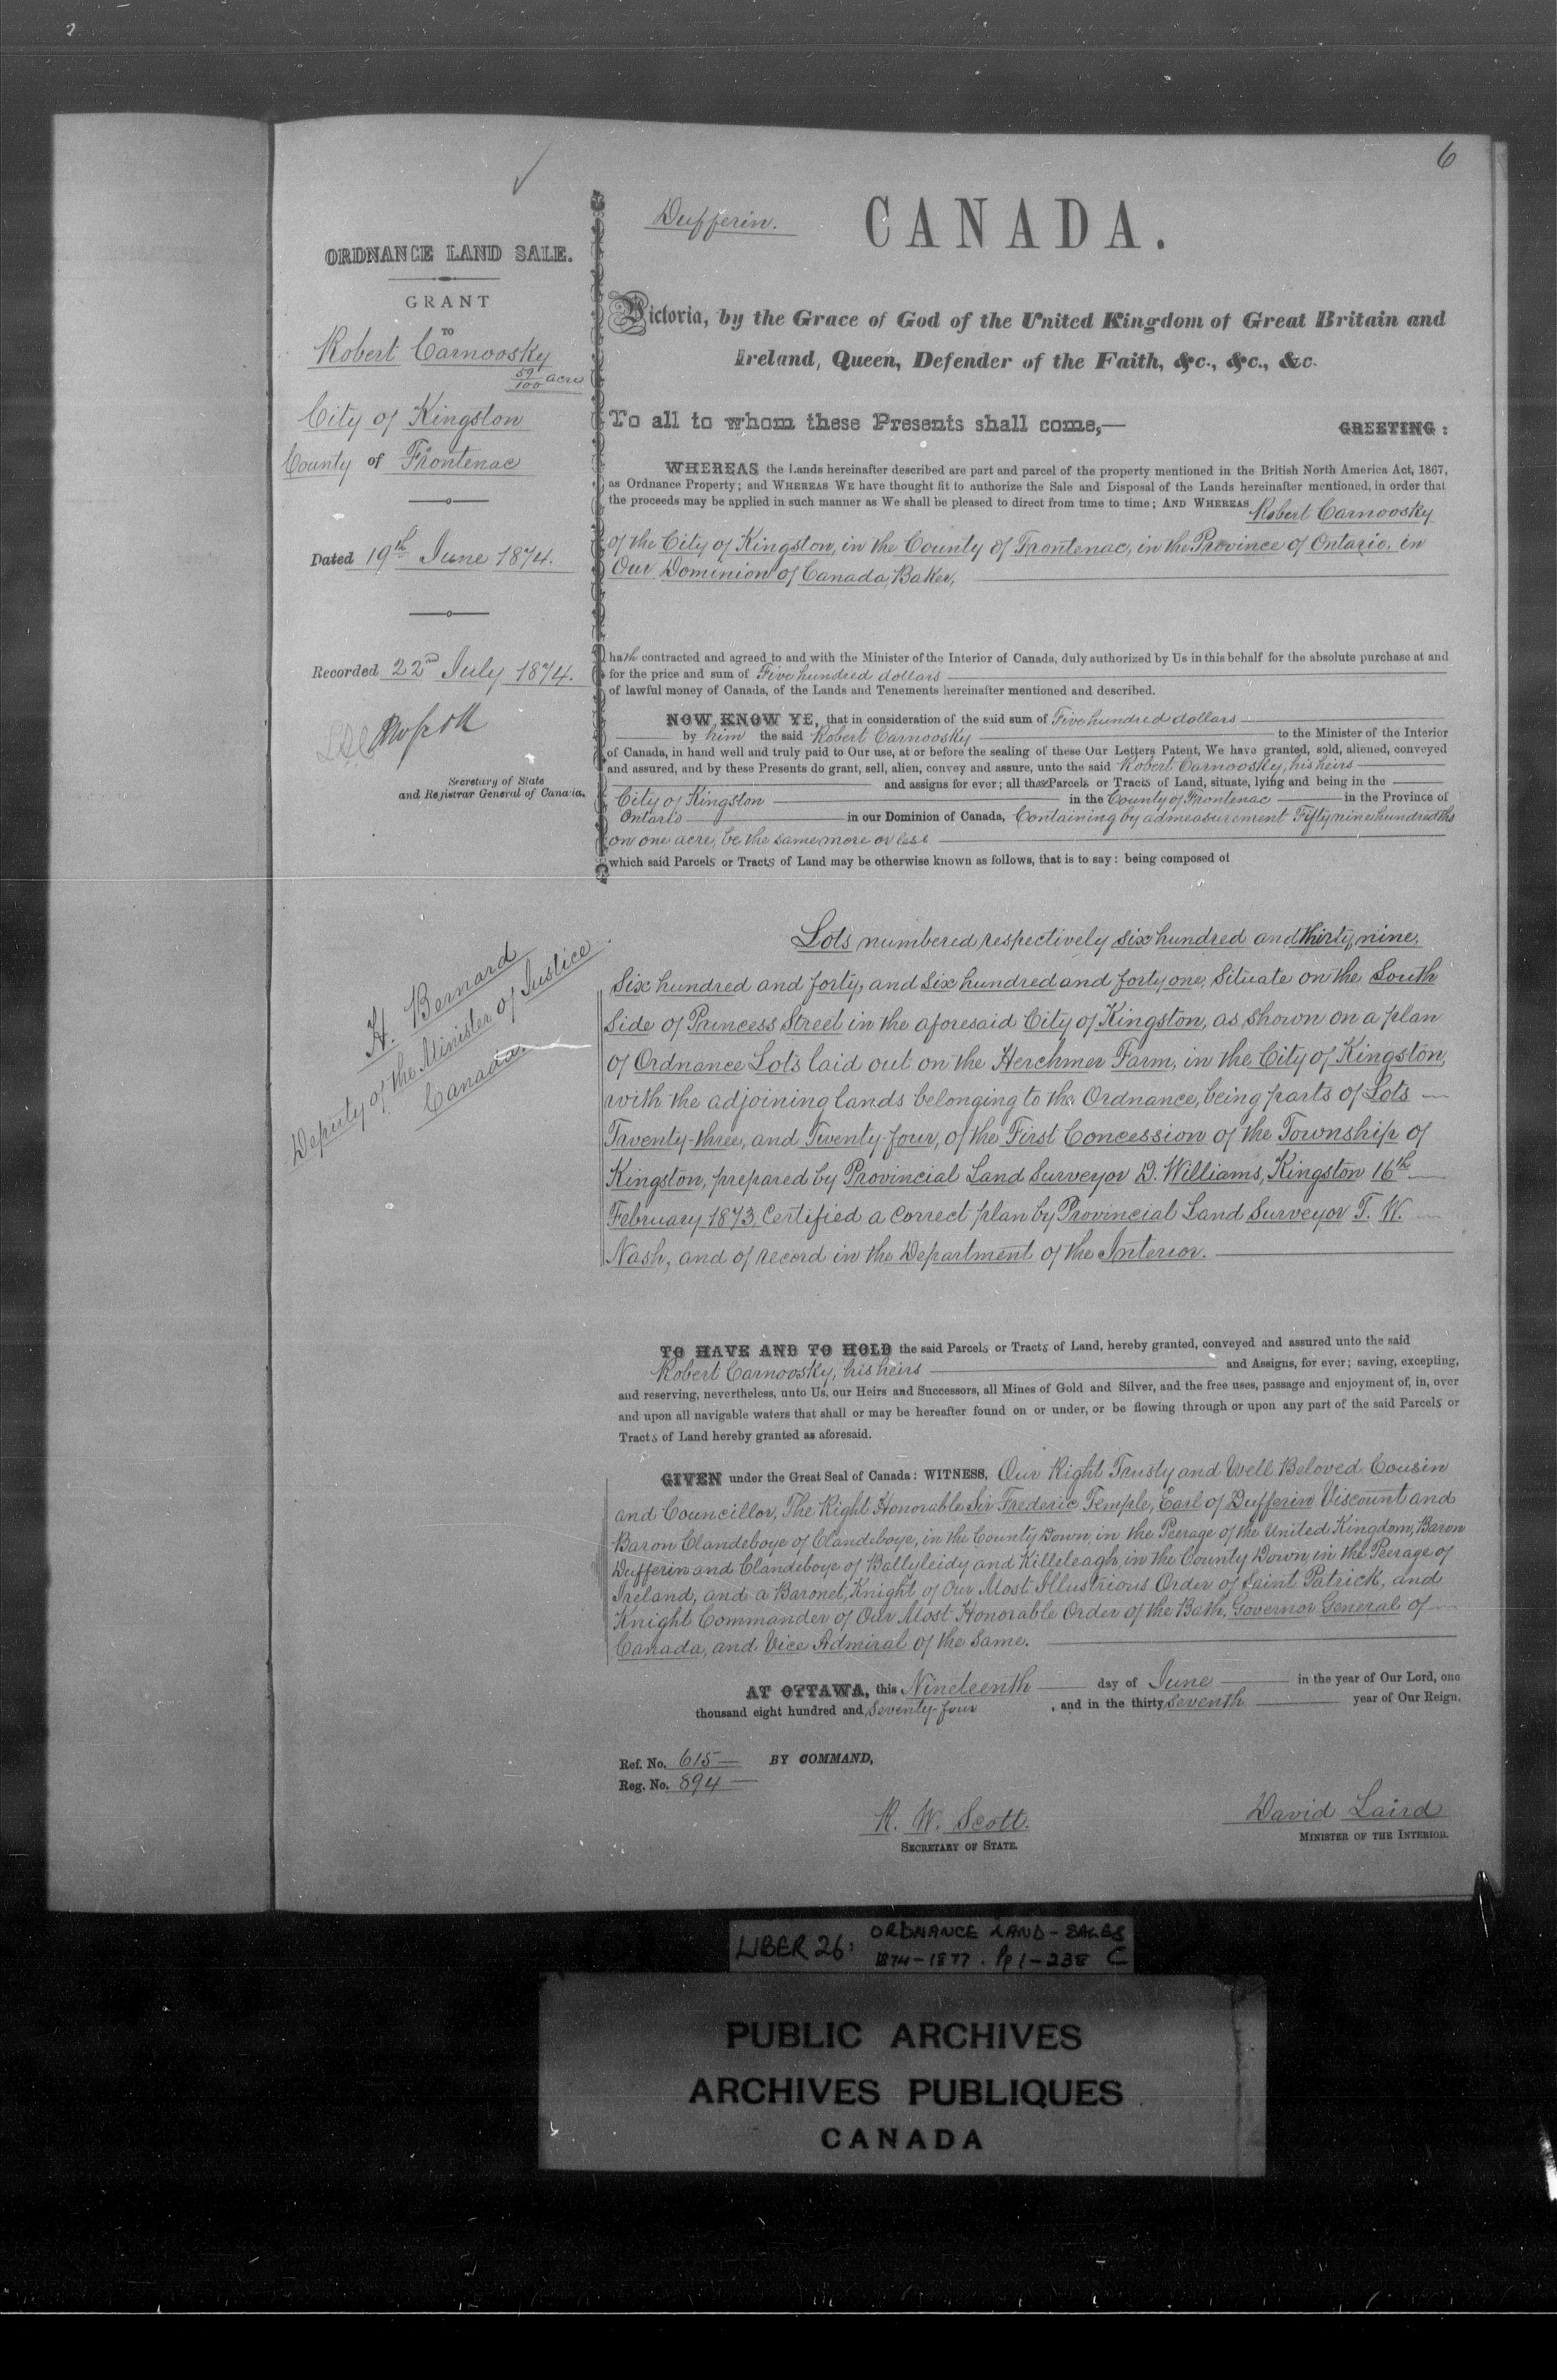 6
Dufferin.
CANADA.
ORDNANCE LAND SALE.
GRANT
TO
Robert Carnoosky
59/100 acre
City of Kingston
County of Frontenac
Dated 19th June 1874.
Recorded 22nd July 1874.
Secretary of State
and Registrar General of Canada.
H. Bernard
Deputy of the Minister of Justice
Canada.
Victoria, by the Grace of God of the United Kingdom of Great Britain and
Ireland, Queen, Defender of the Faith, &c., &c., &c.
To all to whom these Presents shall come,— GREETING:
WHEREAS the Lands hereinafter described are part and parcel of the property mentioned in the British North America Act, 1867,
as Ordnance Property; and WHEREAS WE have thought fit to authorize the Sale and Disposal of the Lands hereinafter mentioned, in order that
the proceeds may be applied in such manner as We shall be pleased to direct from time to time; AND WHEREAS Robert Carnoosky
of the City of Kingston, in the County of Frontenac, in the Province of Ontario, in
Our Dominion of Canada, Baker,
hath contracted and agreed to and with the Minister of the Interior of Canada, duly authorized by Us in this behalf for the absolute purchase at and
for the price and sum of Five hundred dollars
of lawful money of Canada, of the Lands and Tenements hereinafter mentioned and described.
NOW KNOW YE, that in consideration of the said sum of Five hundred dollars
by him the said Robert Carnoosky to the Minister of the Interior
of Canada, in hand well and truly paid to Our use, at or before the sealing of these Our Letters Patent, We have granted, sold, aliened, conveyed
and assured, and by these Presents do grant, sell, alien, convey and assure, unto the said Robert Carnoosky, his heirs
and assigns for ever; all those Parcels or Tracts of Land, situate, lying and being in the
City of Kingston in the County of Frontenac in the Province of
Ontario in our Dominion of Canada, Containing by admeasurement Fifty nine hundredths
on one acre, be the same more or less
which said Parcels or Tracts of Land may be otherwise known as follows, that is to say: being composed of
Lots numbered respectively six hundred and thirty nine,
Six hundred and forty, and Six hundred and forty one, Situate on the South
Side of Princess Street in the aforesaid City of Kingston, as shown on a plan
of Ordnance Lots laid out on the Herchmer Farm, in the City of Kingston,
with the adjoining lands belonging to the Ordnance, being parts of Lots
Twenty-three, and Twenty-four, of the First Concession of the Township of
Kingston, prepared by Provincial Land Surveyor D. Williams, Kingston 16th
February 1873, Certified a correct plan by Provincial Land Surveyor T. W.
Nash, and of record in the Department of the Interior.
TO HAVE AND TO HOLD the said Parcels or Tracts of Land, hereby granted, conveyed and assured unto the said
Robert Carnoosky, his heirs and Assigns, for ever; saving, excepting,
and reserving, nevertheless, unto Us, our Heirs and Successors, all Mines of Gold and Silver, and the free uses, passage and enjoyment of, in, over
and upon all navigable waters that shall or may be hereafter found on or under, or be flowing through or upon any part of the said Parcels or
Tracts of Land hereby granted as aforesaid.
GIVEN under the Great Seal of Canada: WITNESS, Our Right Trusty and Well Beloved Cousin
and Councillor, The Right Honorable Sir Frederic Temple, Earl of Dufferin Viscount and
Baron Clandeboye of Clandeboye, in the County Down in the Peerage of the United Kingdom, Baron
Dufferin and Clandeboye of Ballyleidy and Killeleagh, in the County Down, in the Peerage of
Ireland, and a Baronet, Knight of Our Most Illustrious Order of Saint Patrick, and
Knight Commander of Our Most Honorable Order of the Bath, Governor General of
Canada, and Vice Admiral of the same.
AT OTTAWA, this Nineteenth day of June in the year of Our Lord, one
thousand eight hundred and Seventy-four, and in the thirty seventh year of Our Reign.
Ref. No. 615 BY COMMAND,
Reg. No. 894
R. W. Scott.
SECRETARY OF STATE.
David Laird
MINISTER OF THE INTERIOR.
LIBER 26: ORDNANCE LAND-SALES
1874-1877. Pp 1-238 C
PUBLIC ARCHIVES
ARCHIVES PUBLIQUES
CANADA